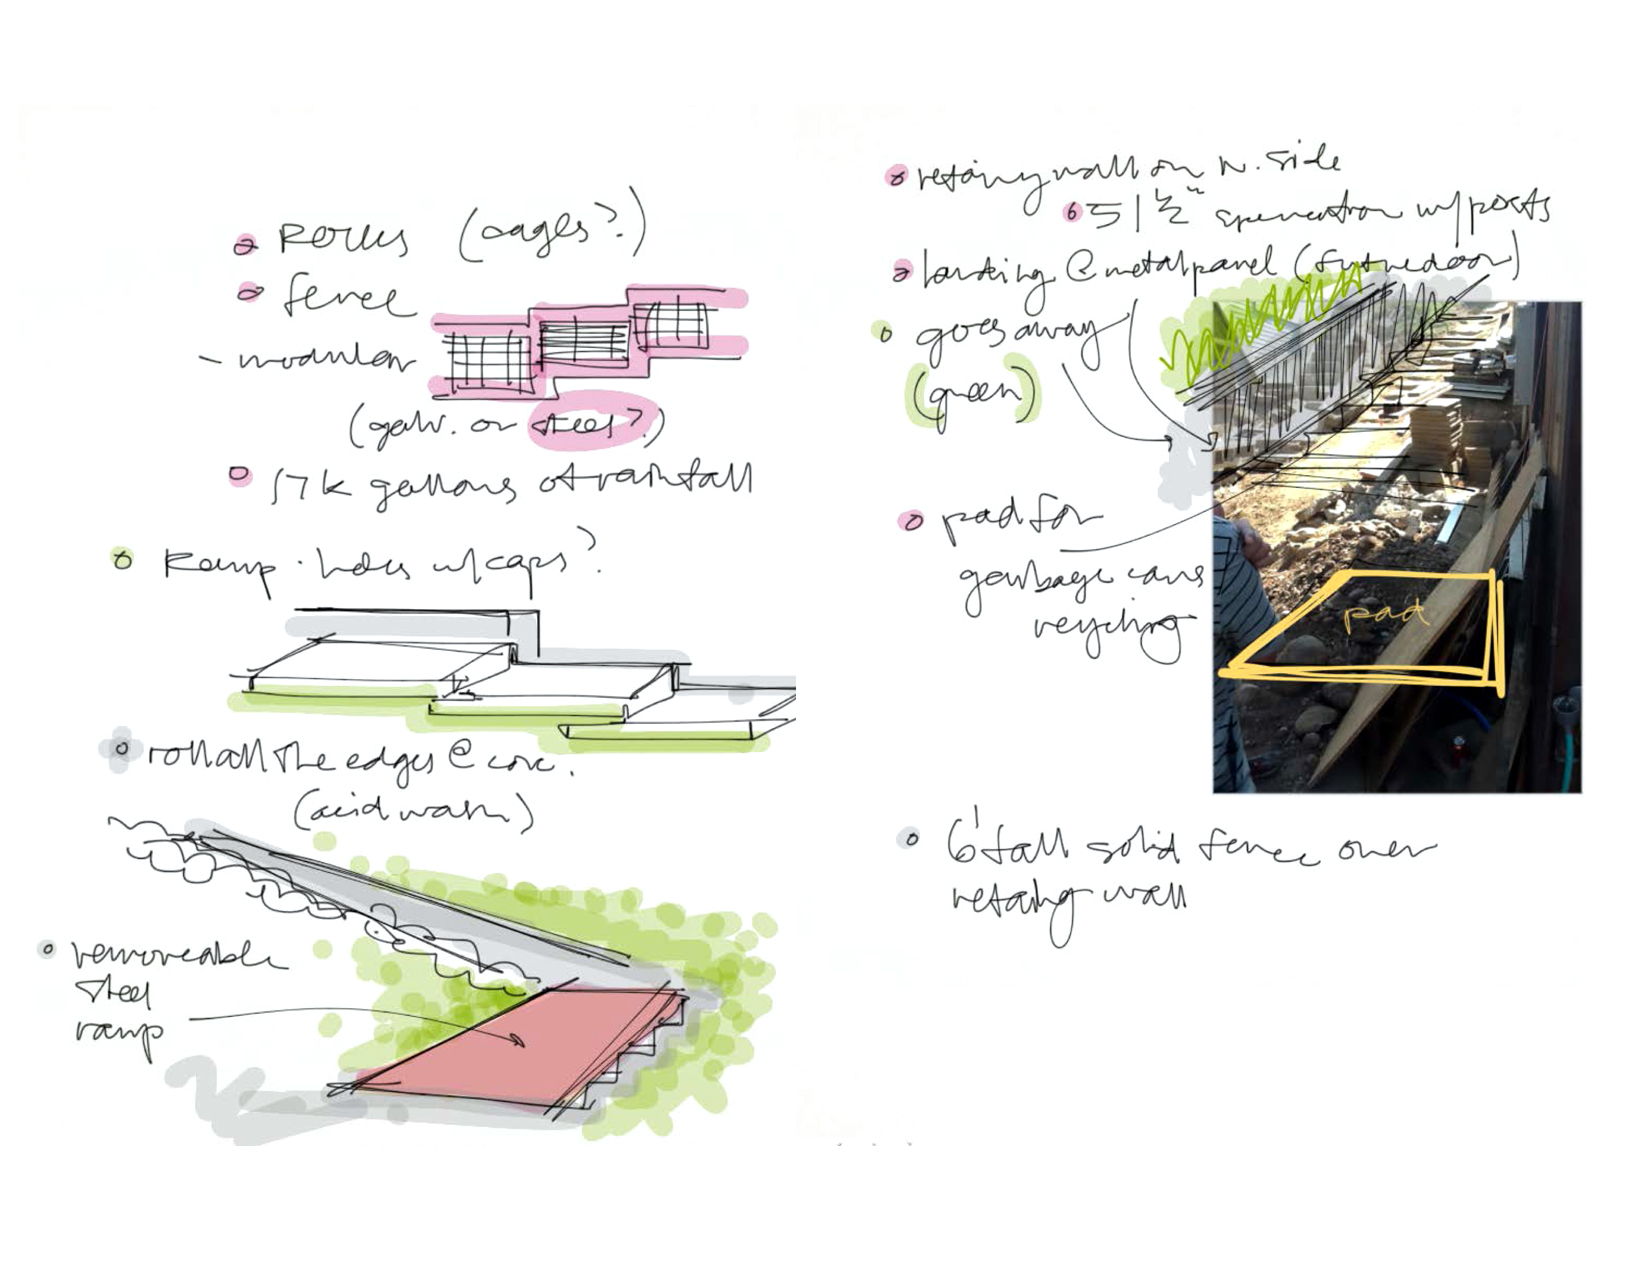 Rocks (cages?)
fence
- modular
(galv. or steel?)
17k gallons of rainfall
Ramp · holes w/caps?
roll all the edges @ conc.
(acid wash)
removeable
steel
ramp
retaing wall on N. side
51 ½" w/posts
landing @ metal panel (future door)
goes away
(green)
pad for
garbage cans
recycling
pad
6' tall solid fence over
retaing wall